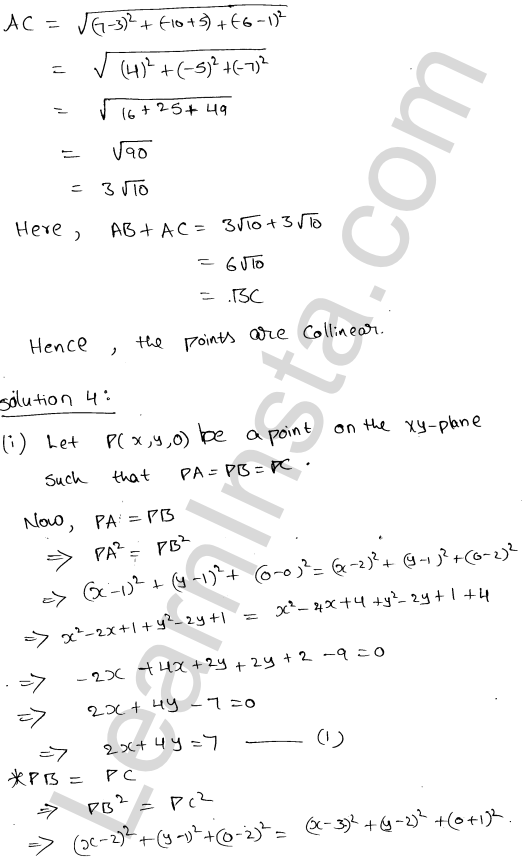 AC = √(7-3)² + (-10+5) + (-6-1)²
= √(4)² + (-5)² + (-7)²
= √16 + 25 + 49
= √90
= 3√10
Here, AB + AC = 3√10 + 3√10
= 6√10
= BC
Hence, the points are collinear.
Solution 4:
(i) Let P(x,y,0) be a point on the xy-plane
such that PA = PB = PC.
Now, PA = PB
⇒ PA² = PB²
⇒ (x-1)² + (y-1)² + (0-0)² = (x-2)² + (y-1)² + (0-2)²
⇒ x²-2x+1+y²-2y+1 = x²-4x+4+y²-2y+1+4
⇒ -2x+4x+2y+2y+2-9=0
⇒ 2x+4y-7=0
⇒ 2x+4y=7 —— (1)
*PB = PC
⇒ PB² = PC²
⇒ (x-2)² + (y-1)² + (0-2)² = (x-3)² + (y-2)² + (0+1)².
LearnInsta.com